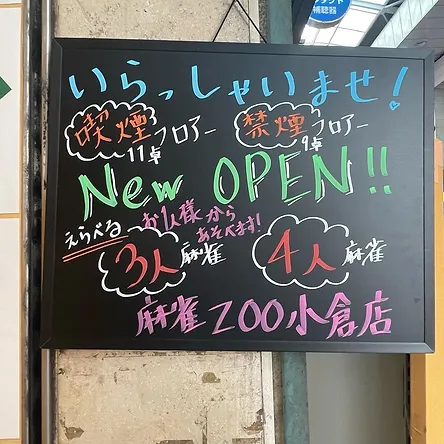 コンタクト
補聴器
いらっしゃいませ!
喫煙フロアー 禁煙フロアー
11卓 9卓
New OPEN!!
えらべる お1人様から
あそべます!
3人麻雀 4人麻雀
麻雀ZOO小倉店